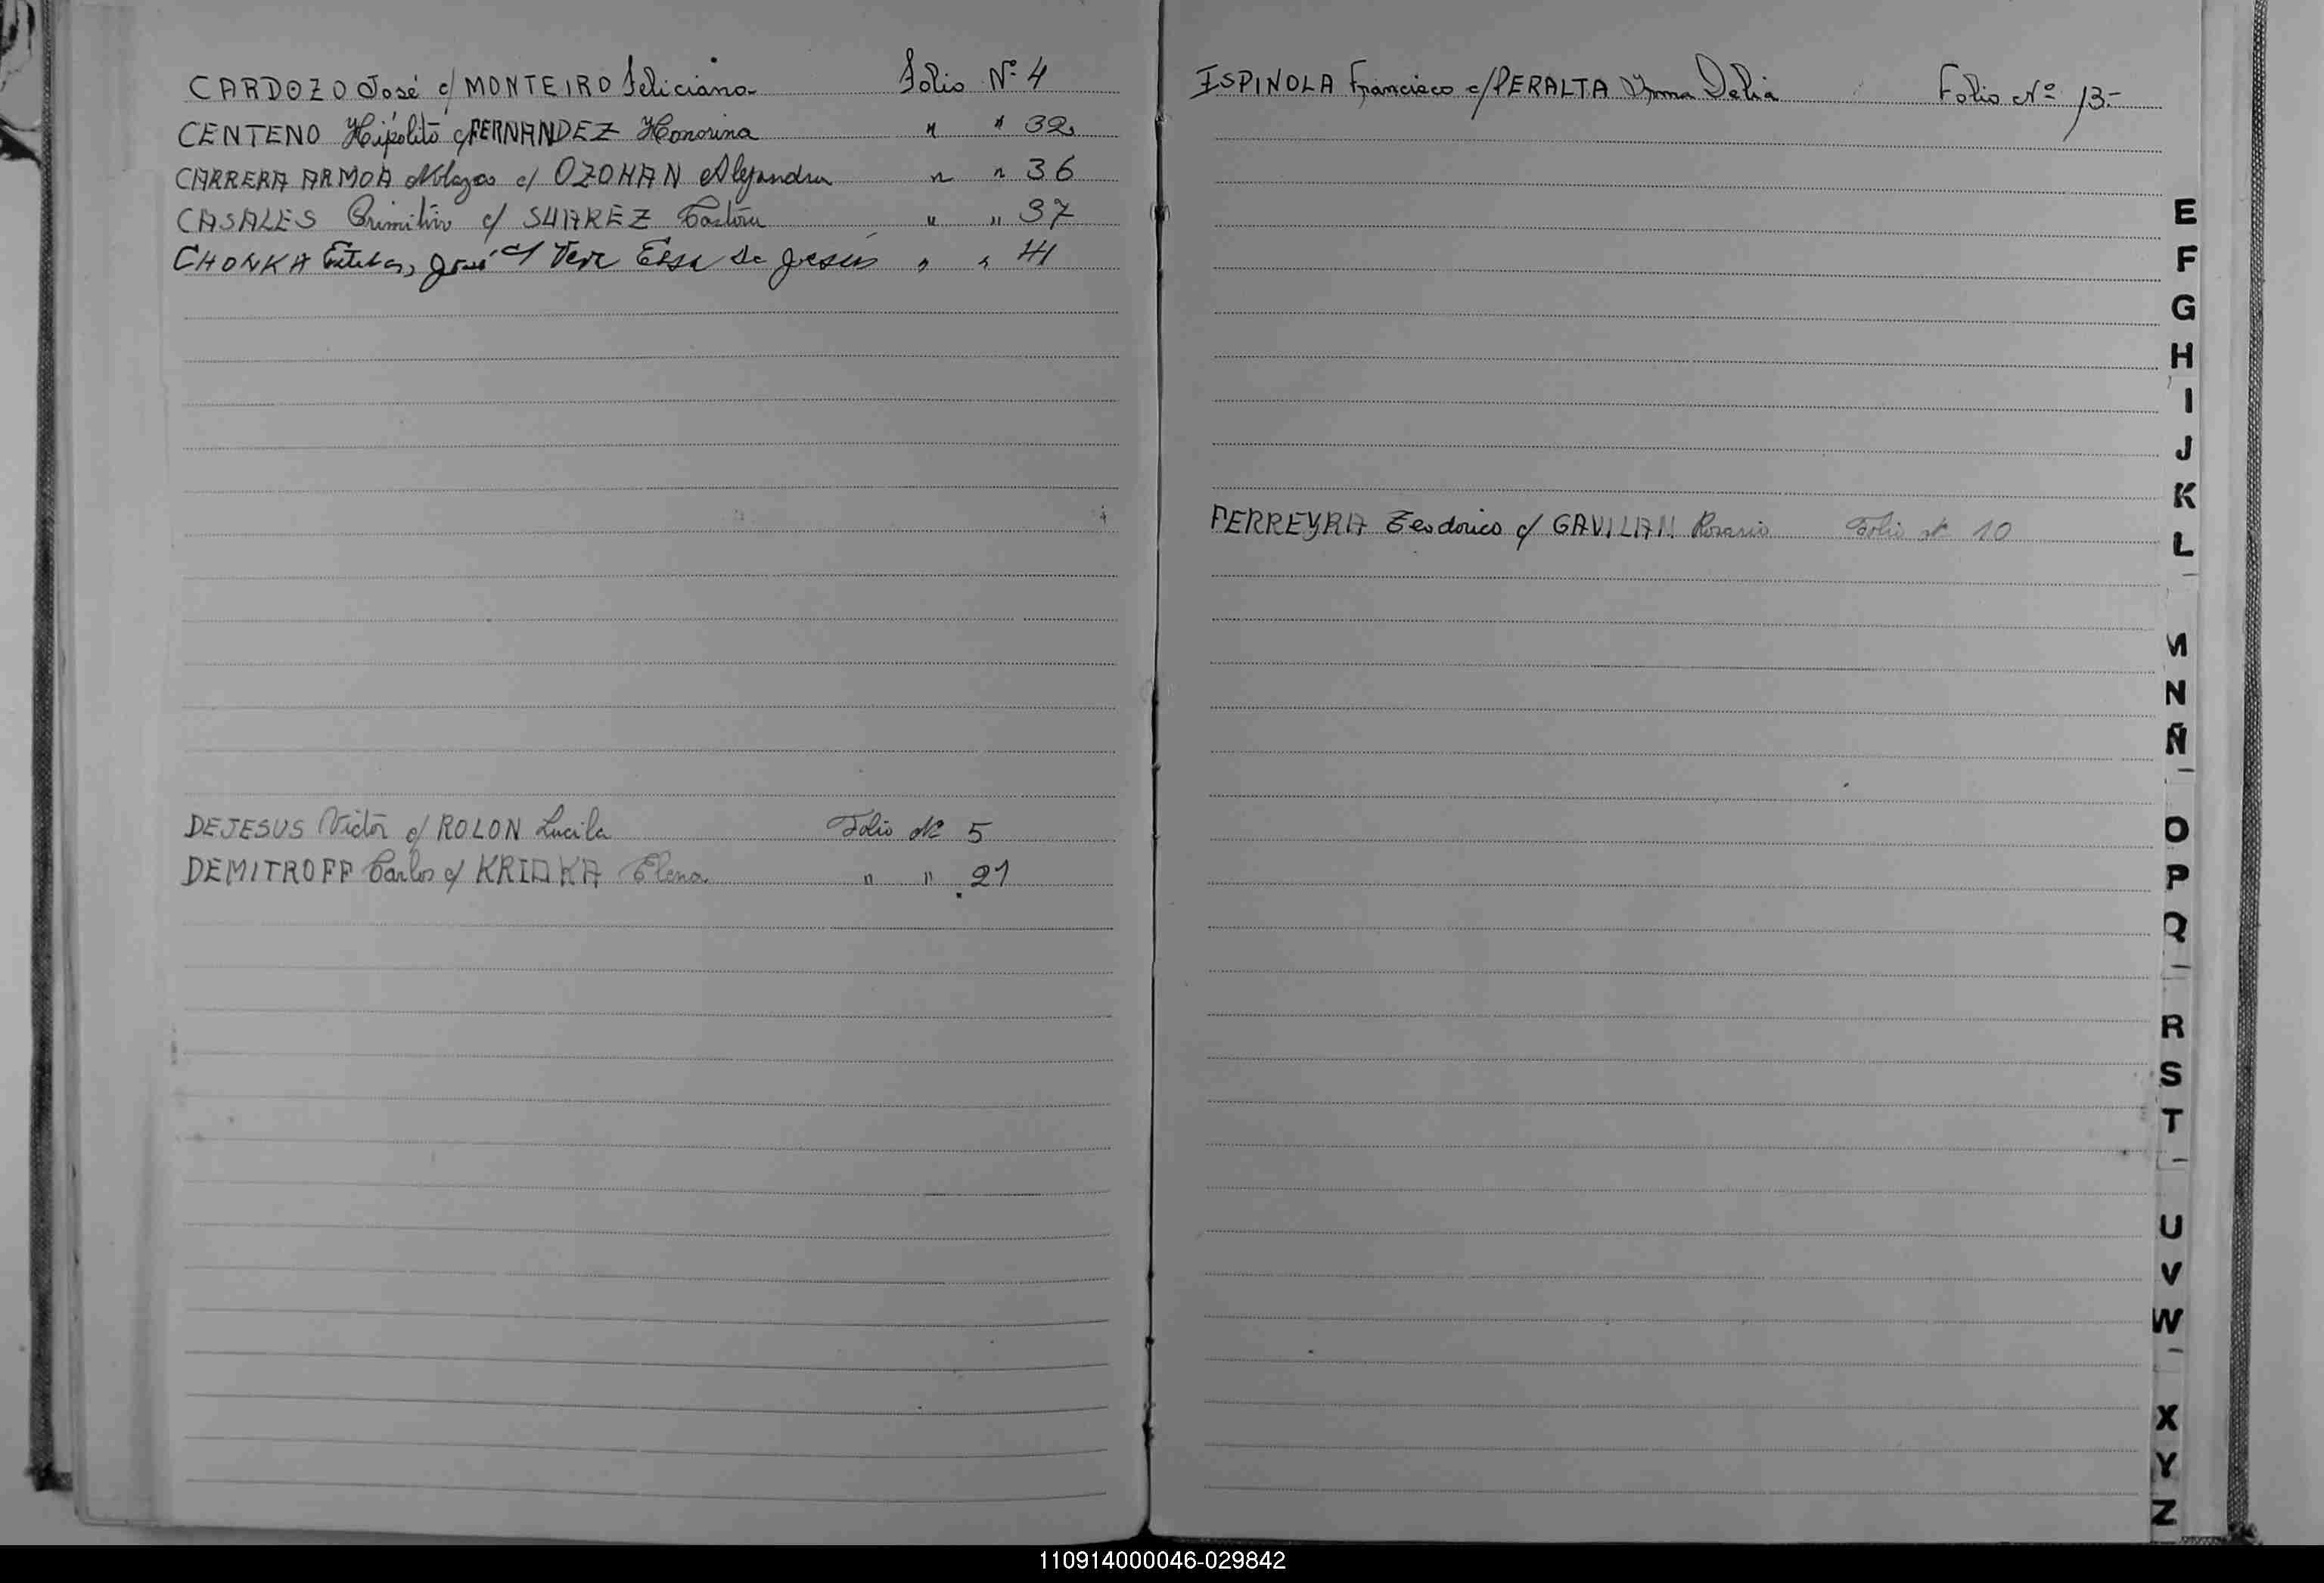 CARDOZO José c/ MONTEIRO Feliciana Folio Nº 4
CENTENO Hipólito c/ FERNANDEZ Honorina " " 32
CARRERA ARMOA Nolazco c/ OZOHAN Alejandra " " 36
CASALES Primitivo c/ SUAREZ Pastora " " 37
CHONKA Esteban, José c/ Vera Elsa De Jesús " " 41
DEJESUS Victor c/ ROLON Lucila Folio Nº 5
DEMITROFF Carlos c/ Elena " " 21
ESPINOLA Francisco c/ PERALTA Irma Delia Folio Nº 13.-
FERREYRA Teodorico c/ GAVILAN Rosario Folio Nº 10
E
F
G
H
I
J
K
L
M
N
Ñ
O
P
Q
R
S
T
U
V
W
X
Y
Z
110914000046-029842